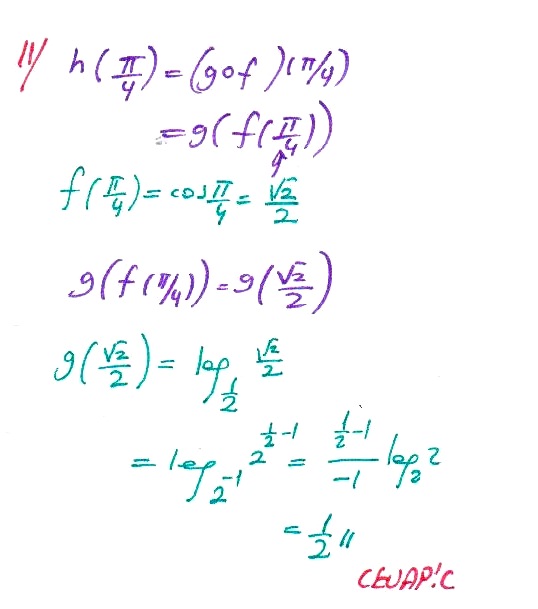 11/ h(π/4) = (gof)(π/4)
= g(f(π/4))
f(π/4) = cos π/4 = √2/2
g(f(π/4)) = g(√2/2)
g(√2/2) = log_{1/2} √2/2
= log_{2^{-1}} 2^{1/2-1} = (1/2-1)/(-1) log_2 2
= 1/2 //
CEVAP:C